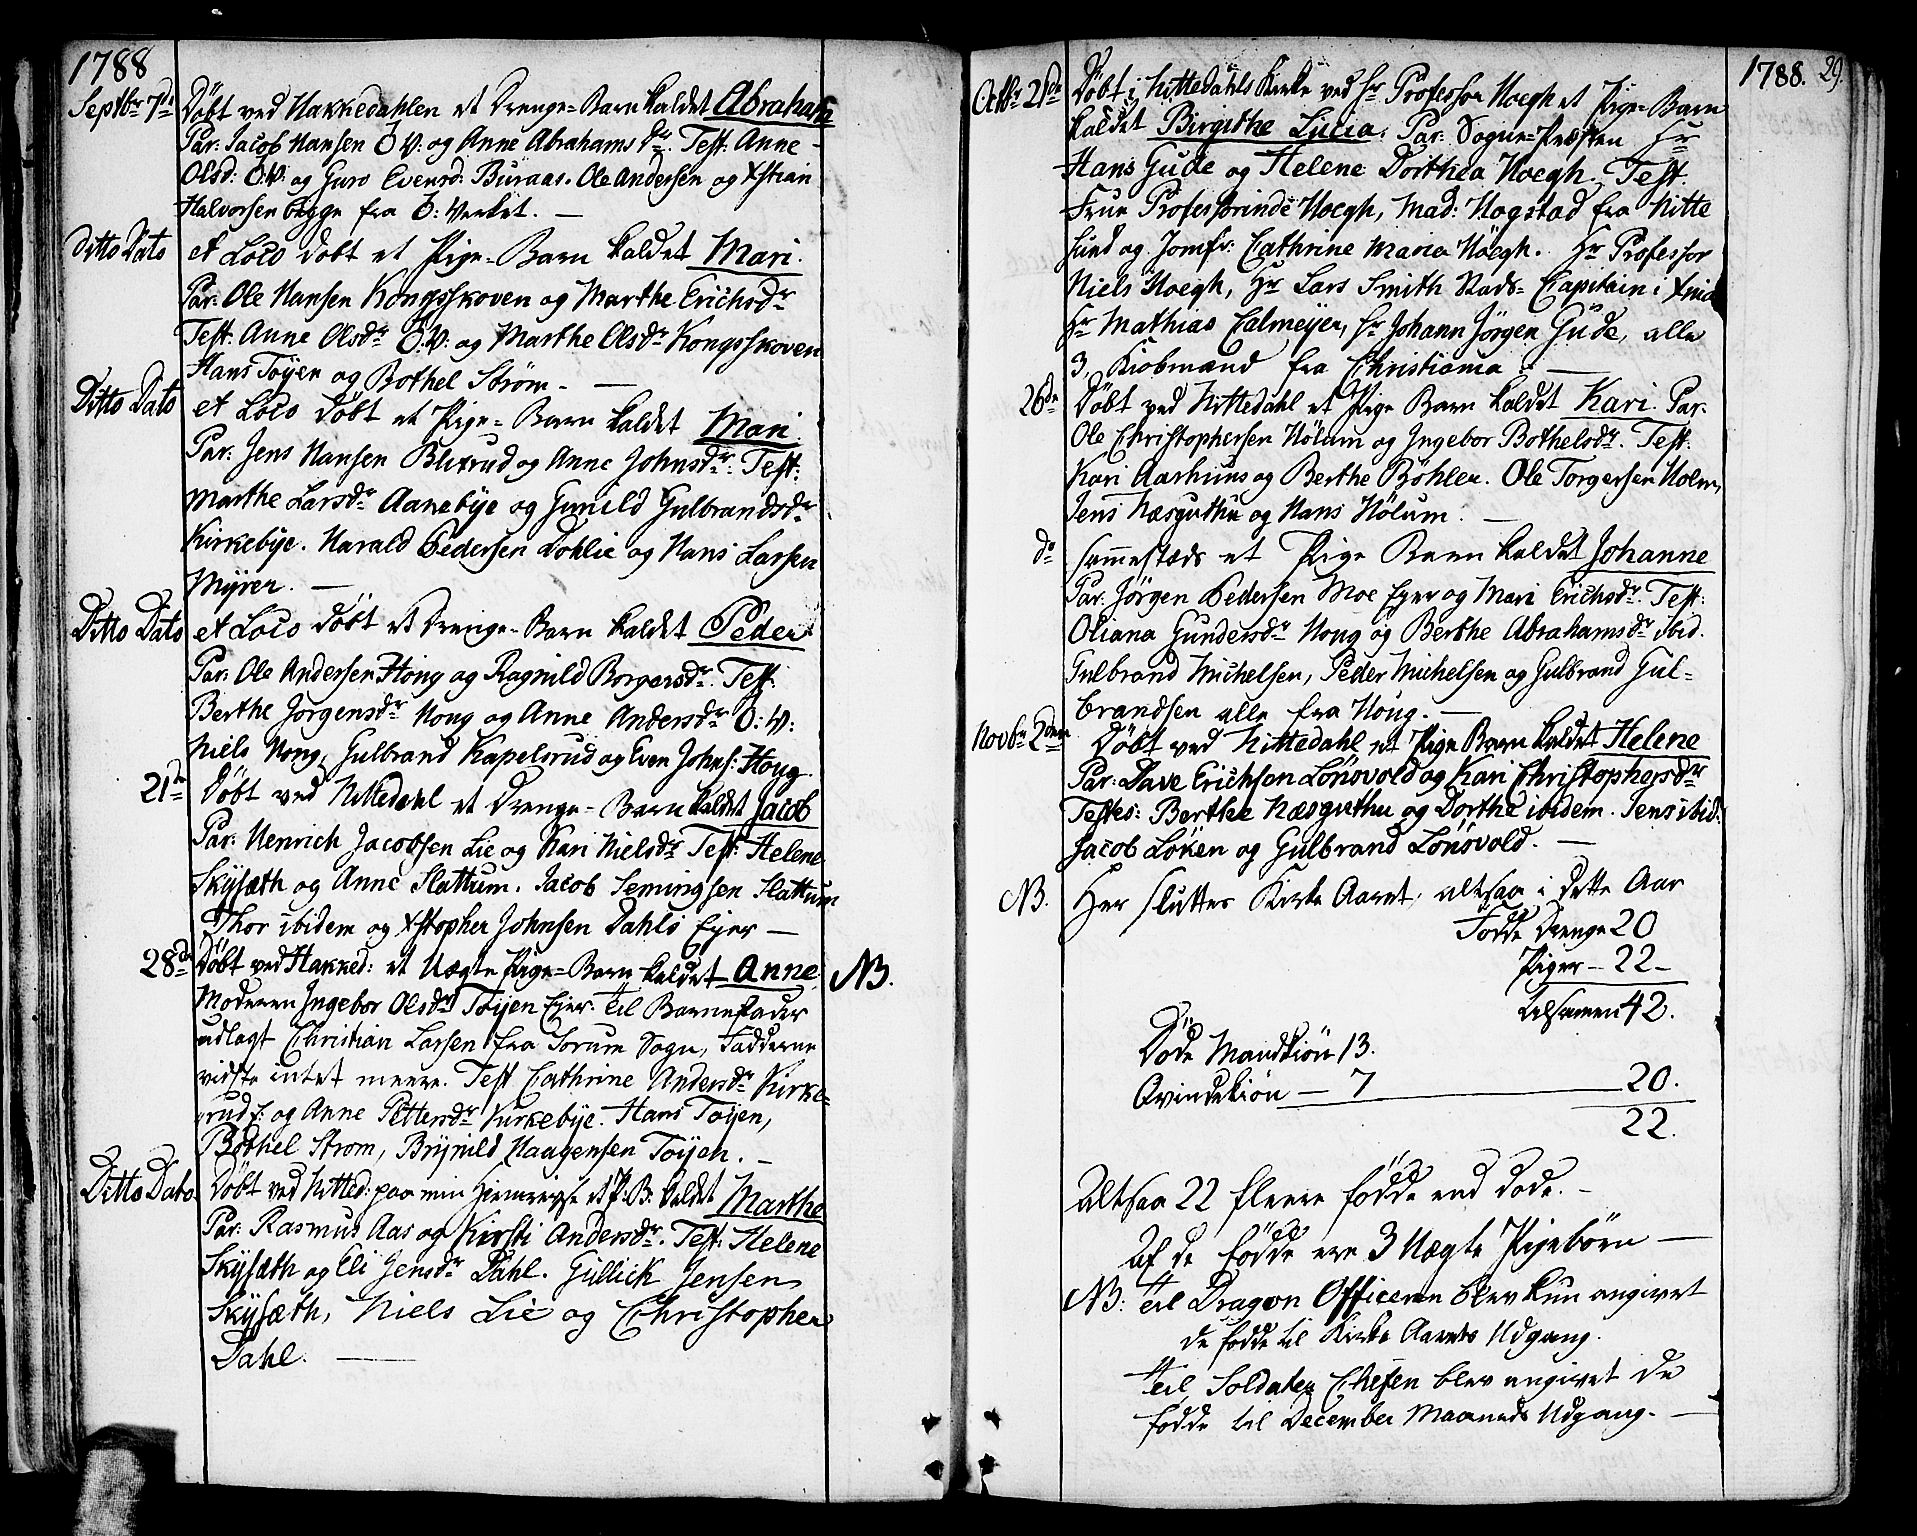 1788
Septbr 7de Döbt ved Hakkedahlen et Drenge-Barn kaldet Abraham
Par: Jacob Hansen O: V: og Anne Abrahams Dr. Test: Anne
Olsd: O: V: og Guro Evensd: Buraas. Ole Andersen og Xstian
Halvorsen begge fra O: Verket. —
Ditto Dato et Loco döbt et Pige-Barn kaldet Mari.
Par: Ole Hansen Kongsskoven og Marthe Erichsdr
Test: Anne Olsdr O: V: og Marthe Olsdr Kongsskoven
Hans Töyen og Bothel Ström. —
Ditto Dato et Loco döbt et Pige-Barn kaldet Mari
Par: Jens Hansen Blixrud og Anne Johnsdr: Test:
Marthe Larsdr Aanebye og Gunild Gulbrandsdr
Kirkebye. Harald Pedersen Dohlie og Hans Larsen
Myrer. —
Ditto Dato et Loco döbt et Drenge-Barn kaldet Peder
Par: Ole Andersen Houg og Ragnild Borgersdr. Test:
Berthe Jörgensdr Houg og Anne Andersdr O: V:
Niels Houg, Gulbrand Kapelsrud og Even Johns: Houg
21de Döbt ved Nittedahl et Drenge-Barn kaldet Jacob
Par: Henrich Jacobsen Lie og Kari Nielsdr Test: Helene
Skysæth og Anne Slattum. Jacob Semingsen Slattum
Thor ibidem og Xstopher Johnsen Dahls Ejer —
28de Döbt ved Hakked: et Uægte Pige-Barn kaldet Anne NB.
Moderen Ingebor Olsdr Töyen Ejer. Til Barnefader
udlagt Christian Larsen fra Sorum Sogn, Fadderne
vidste intet meere. Test Cathrine Andersdr Kirke-
rud: og Anne Pettersdr Kirkebye. Hans Töyen,
Bothel Strom, Brynild Haagensen Töyen. —
Ditto Dato Döbt ved Nitted: paa min Hiemreyse et P: B: kaldet Marthe
Par: Rasmus Aas og Kirsti Andersdr. Test: Helene
Skysæth og Eli Jensdr Dahl. Gullick Jensen
Skysæth, Niels Lie og Christopher
Dahl. —
1788. 29.
Octbr 21de Döbt i Nittedahls Kirke ved Hr Professor Hoegh et Pige-Barn
kaldet Birgithe Lucia. Par: Sogne-Præsten Hr
Hans Gude og Helene Dorthea Hoegh. Test
Frue Professorinde Hoegh, Mad: Hogstad fra Nitte
sund og Jomfr: Cathrine Maria Höegh. Hr Professor
Niels Hoegh, Hr Lars Smith Stads-Capitain i Xnia
Hr Mathias Calmeyer, Hr Johann Jörgen Gude, alle
3, Kiöbmænd fra Christiania. —
26de Döbt ved Nittedahl et Pige Barn kaldet Kari. Par:
Ole Christophersen Hölum og Ingebor Bothelsdr. Test:
Kari Aarhuus og Berthe Böhler. Ole Torgersen Holm,
Jens Næsguthu og Hans Hölum. —
do sammestæds et Pige Barn kaldet Johanne
Par: Jörgen Pedersen Moe Ejer og Mari Erichsdr. Test:
Oliana Gundersdr Houg og Berthe Abrahamsdr ibid.
Gulbrand Michelsen, Peder Michelsen og Gulbrand Gul-
brandsen alle fra Houg. —
Novbr 2den Döbt ved Nittedahl et Pige Barn kaldet Helene
Par: Dave Erichsen Lönövold og Kari Christophersdr
Testes: Berthe Næsguthu og Dorthe ibidem. Jens ibid:
Jacob Löken og Gulbrand Lönövold. —
NB. Her sluttes Kirke Aaret, altsaa i dette Aar
Födde Drenge 20
Piger — 22 —
tilsamen 42.
Döde Mandkiön 13.
Qvindekiön — 7 20.
22.
Altsaa 22 fleere födde end döde. —
Af de födde ere 3 Uægte Pigebörn —
NB: Til Dragon Officeren blev kun angivet
de födde til Kirke Aarets Udgang.
Til Soldater Chefen blev angivet de
födde til December Maaneds Udgang. —